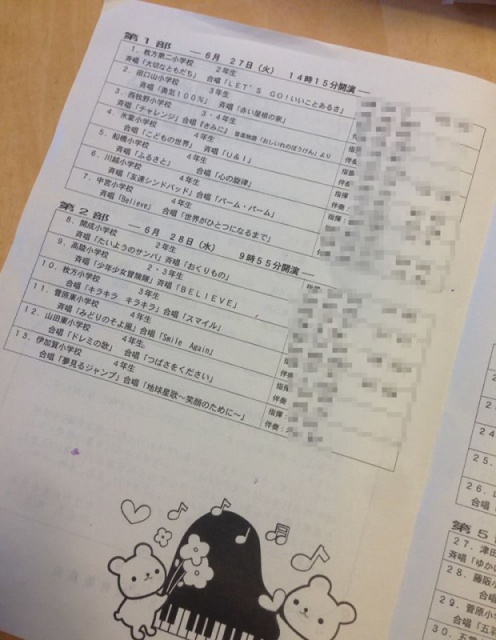 第1部 ―6月 27日(火) 14時15分開演―
1. 枚方第二小学校 2年生
斉唱「大切なともだち」 合唱「LET'S GO!いいことあるさ」
2. 田口山小学校 3年生
斉唱「勇気100%」 斉唱「赤い屋根の家」
3. 西牧野小学校 3・4年生
斉唱「チャレンジ」合唱「きみに」 音楽物語「おしいれのぼうけん」より
4. 氷室小学校 4年生
斉唱「こどもの世界」 斉唱「U&I」
5. 船橋小学校 4年生
斉唱「ふるさと」 合唱「心の旋律」
6. 川越小学校 4年生
斉唱「友達シンドバッド」合唱「パーム・パーム」
7. 中宮小学校 4年生
斉唱「Believe」 合唱「世界がひとつになるまで」
第2部 ―6月 28日(水) 9時55分開演―
8. 開成小学校 2年生
斉唱「たいようのサンバ」斉唱「おくりもの」
9. 高陵小学校 2・3年生
斉唱「少年少女冒険隊」斉唱「BELIEVE」
10. 枚方小学校 3年生
合唱「キラキラ キラキラ」合唱「スマイル」
11. 菅原東小学校 4年生
斉唱「みどりのそよ風」合唱「Smile Again」
12. 山田東小学校 4年生
合唱「ドレミの歌」 合唱「つばさをください」
13. 伊加賀小学校 4年生
合唱「夢見るジャンプ」合唱「地球星歌~笑顔のために~」
指揮
伴奏
指揮:
伴奏:
24
25.
26.
合唱
第5
27. 津田
斉唱「ゆかい
28. 藤阪
合唱
29. 菅原小
合唱「五
30.